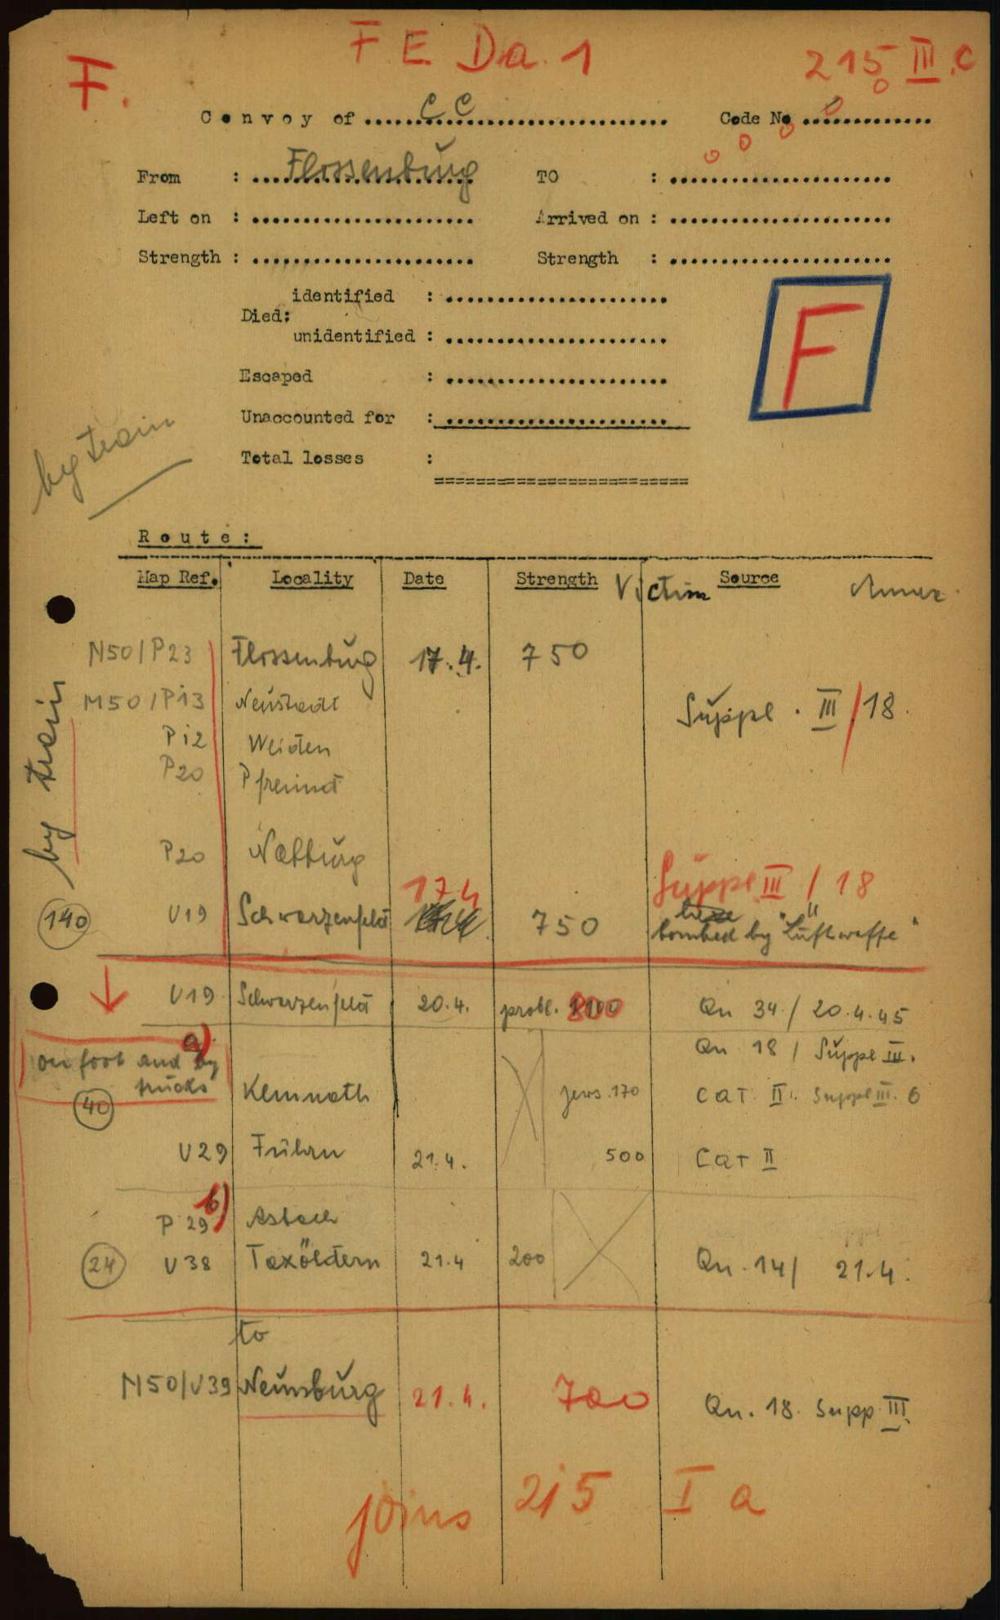 F. F E. Da. 1 215 III.C
Convoy of CC Code No
From : Flossenbürg TO :
Left on : Arrived on :
Strength : Strength :
identified :
Died:
unidentified :
Escaped :
Unaccounted for :
by train
Total losses :
F
Route:
Map Ref. Locality Date Strength Victim Source
by train
N50/P23 Flossenbürg 17.4. 750
M50/P13 Neustadt Suppl. III/18.
P12 Weiden
P20 Pfreimdt
P20 Nabburg
140 U19 Schwarzenfeld 17.4 750 Suppl III / 18
bombed by "Luftwaffe"
U19 Schwarzenfeld 20.4. probl. 800 Qu 34 / 20.4.45
a) Qu 18 / Suppl III.
on foot and by trucks
40 Kemnath jews. 170 CAT II. Suppl III. 6
U29 Fuhrn 21.4. 500 CAT II
b)
P 29 Asbach
24 U38 Taxöldern 21.4 200 Qu. 14/ 21.4.
to
M50/U39 Neunburg 21.4. 700 Qu. 18. Supp III.
joins 215 I a